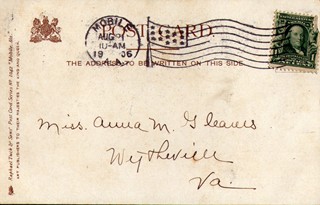 POST CARD.
THE ADDRESS TO BE WRITTEN ON THIS SIDE.
MOBILE
AUG
10-AM
1906
Miss. Anna M. Gleaves
Wytheville
Va.
Raphael Tuck & Sons' Post Card Series No. "Mobile, Ala."
ART PUBLISHERS TO THEIR MAJESTIES THE KING AND QUEEN.